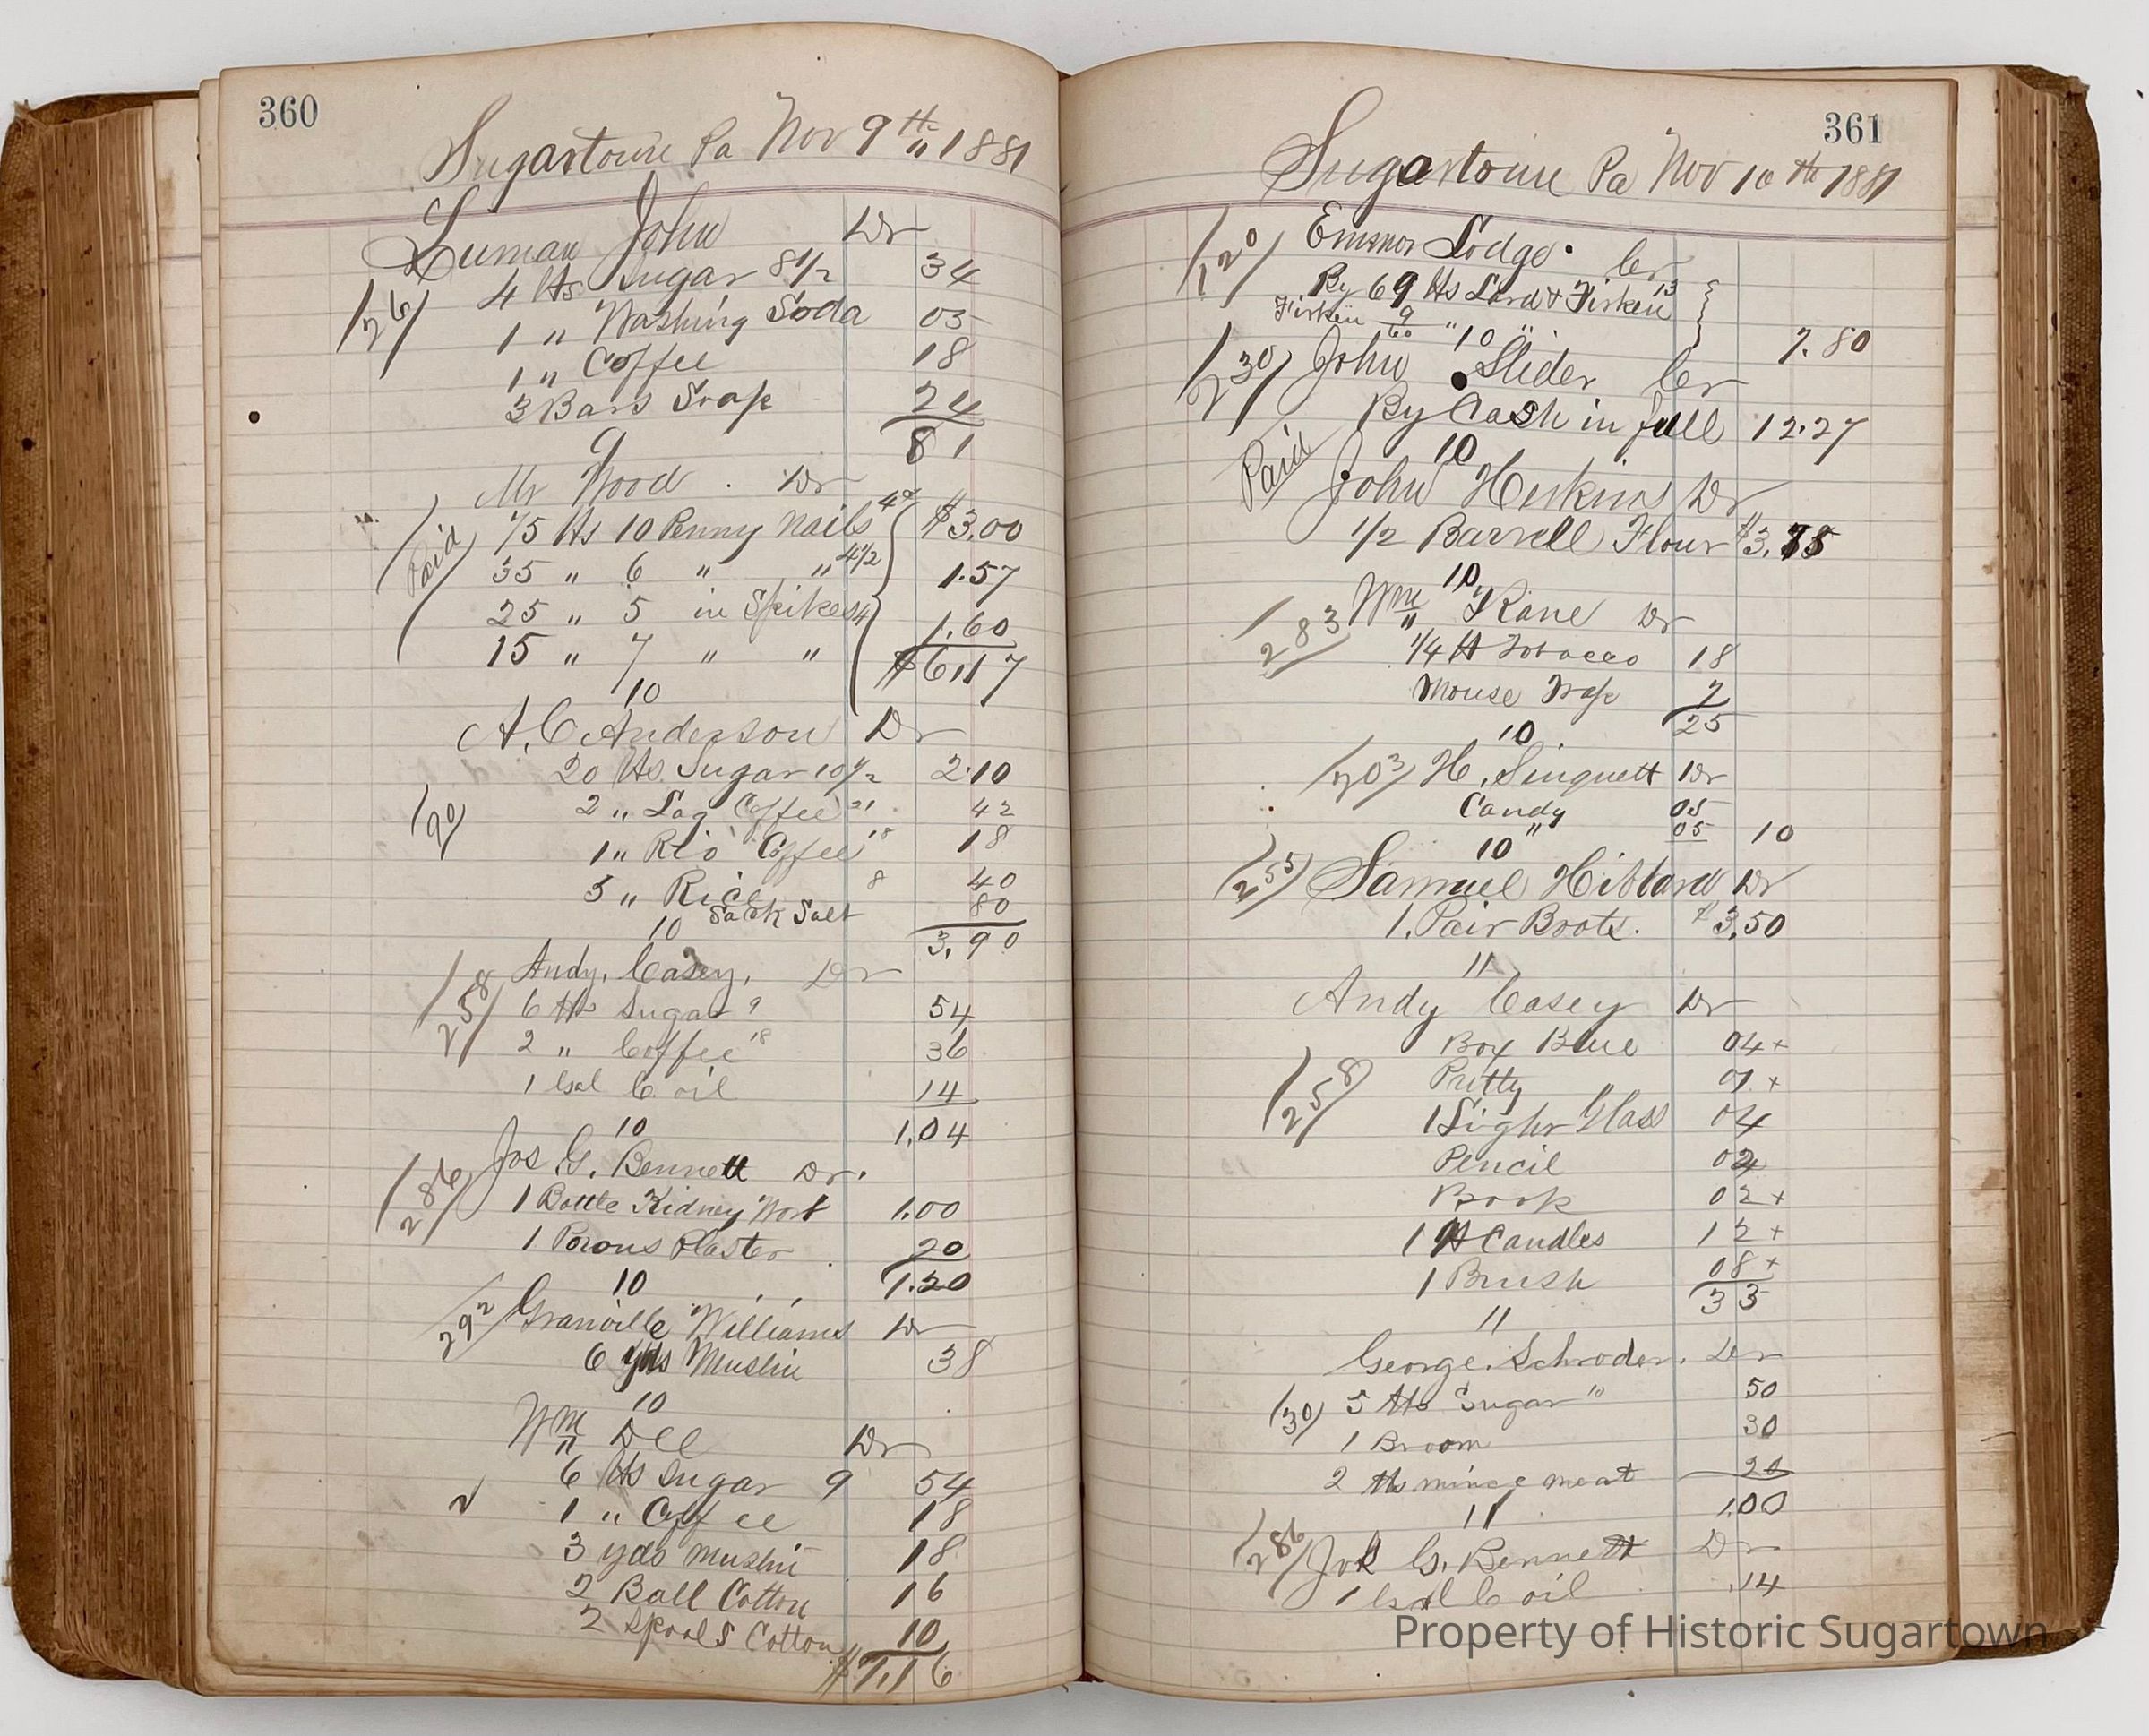 360
Sugartown Pa Nov 9th " 1881
Luman John Dr
4 lbs Sugar 8 1/2 34
/26/ 1 " Washing Soda 05
1 " Coffee 18
3 Bars Soap 24
81
9
Mr Wood . Dr
Paid 75 lbs 10 Penny Nails 4c $3.00
35 " 6 " " 4 1/2 1.57
25 " 5 in Spikes 4 1.60
15 " 7 " " $6.17
10
A. C Anderson Dr
20 lbs Sugar 10 1/2 2.10
/90/ 2 " Lag Coffee 21 42
1 " Rio Coffee 18 18
5 " Rice 8 40
Sack Salt 80
10 3.90
/258/ Andy. Casey. Dr
6 lbs Sugar 9 54
2 " Coffee 18 36
1 Gal C. oil 14
10 1.04
/286/ Jos G. Bennett Dr.
1 Bottle Kidney Wort 1.00
1 Porous Plaster 20
10 1.20
/292/ Granville Williams Dr
6 yds Muslin 38
10
Wm Dell Dr
6 lbs Sugar 9 54
1 " Coffee 18
3 yds muslin 18
2 Ball Cotton 16
2 Spools Cotton 10
$1.16
361
Sugartown Pa Nov 10th 1881
/120/ Lodge. Cr
By 69 lbs Lard & Firken 13
Firken 9/60 " 10 " 7.80
/230/ John Slider Cr
By Cash in full 12.27
10
Paid John Heskins Dr
1/2 Barrell Flour $3.75
10
/283/ Wm Kane Dr
1/4 lb Tobacco 18
Mouse Trap 7
25
10
/203/ H. Singuett Dr
Candy 05
" 05 10
10
/255/ Samuel Hibbard Dr
1. Pair Boots. $3.50
11
Andy Casey Dr
Box Blue 04+
/258/ Putty 01 +
1 Light Glass 04
Pencil 02
Book 02 +
1 lb Candles 12 +
1 Brush 08 +
33
11
George. Schroder. Dr
/30/ 5 lbs Sugar 10 50
1 Broom 30
2 lbs mince meat 20
11 1.00
/286/ Jos G. Bennett Dr
1 Gal C oil .14
Property of Historic Sugartown